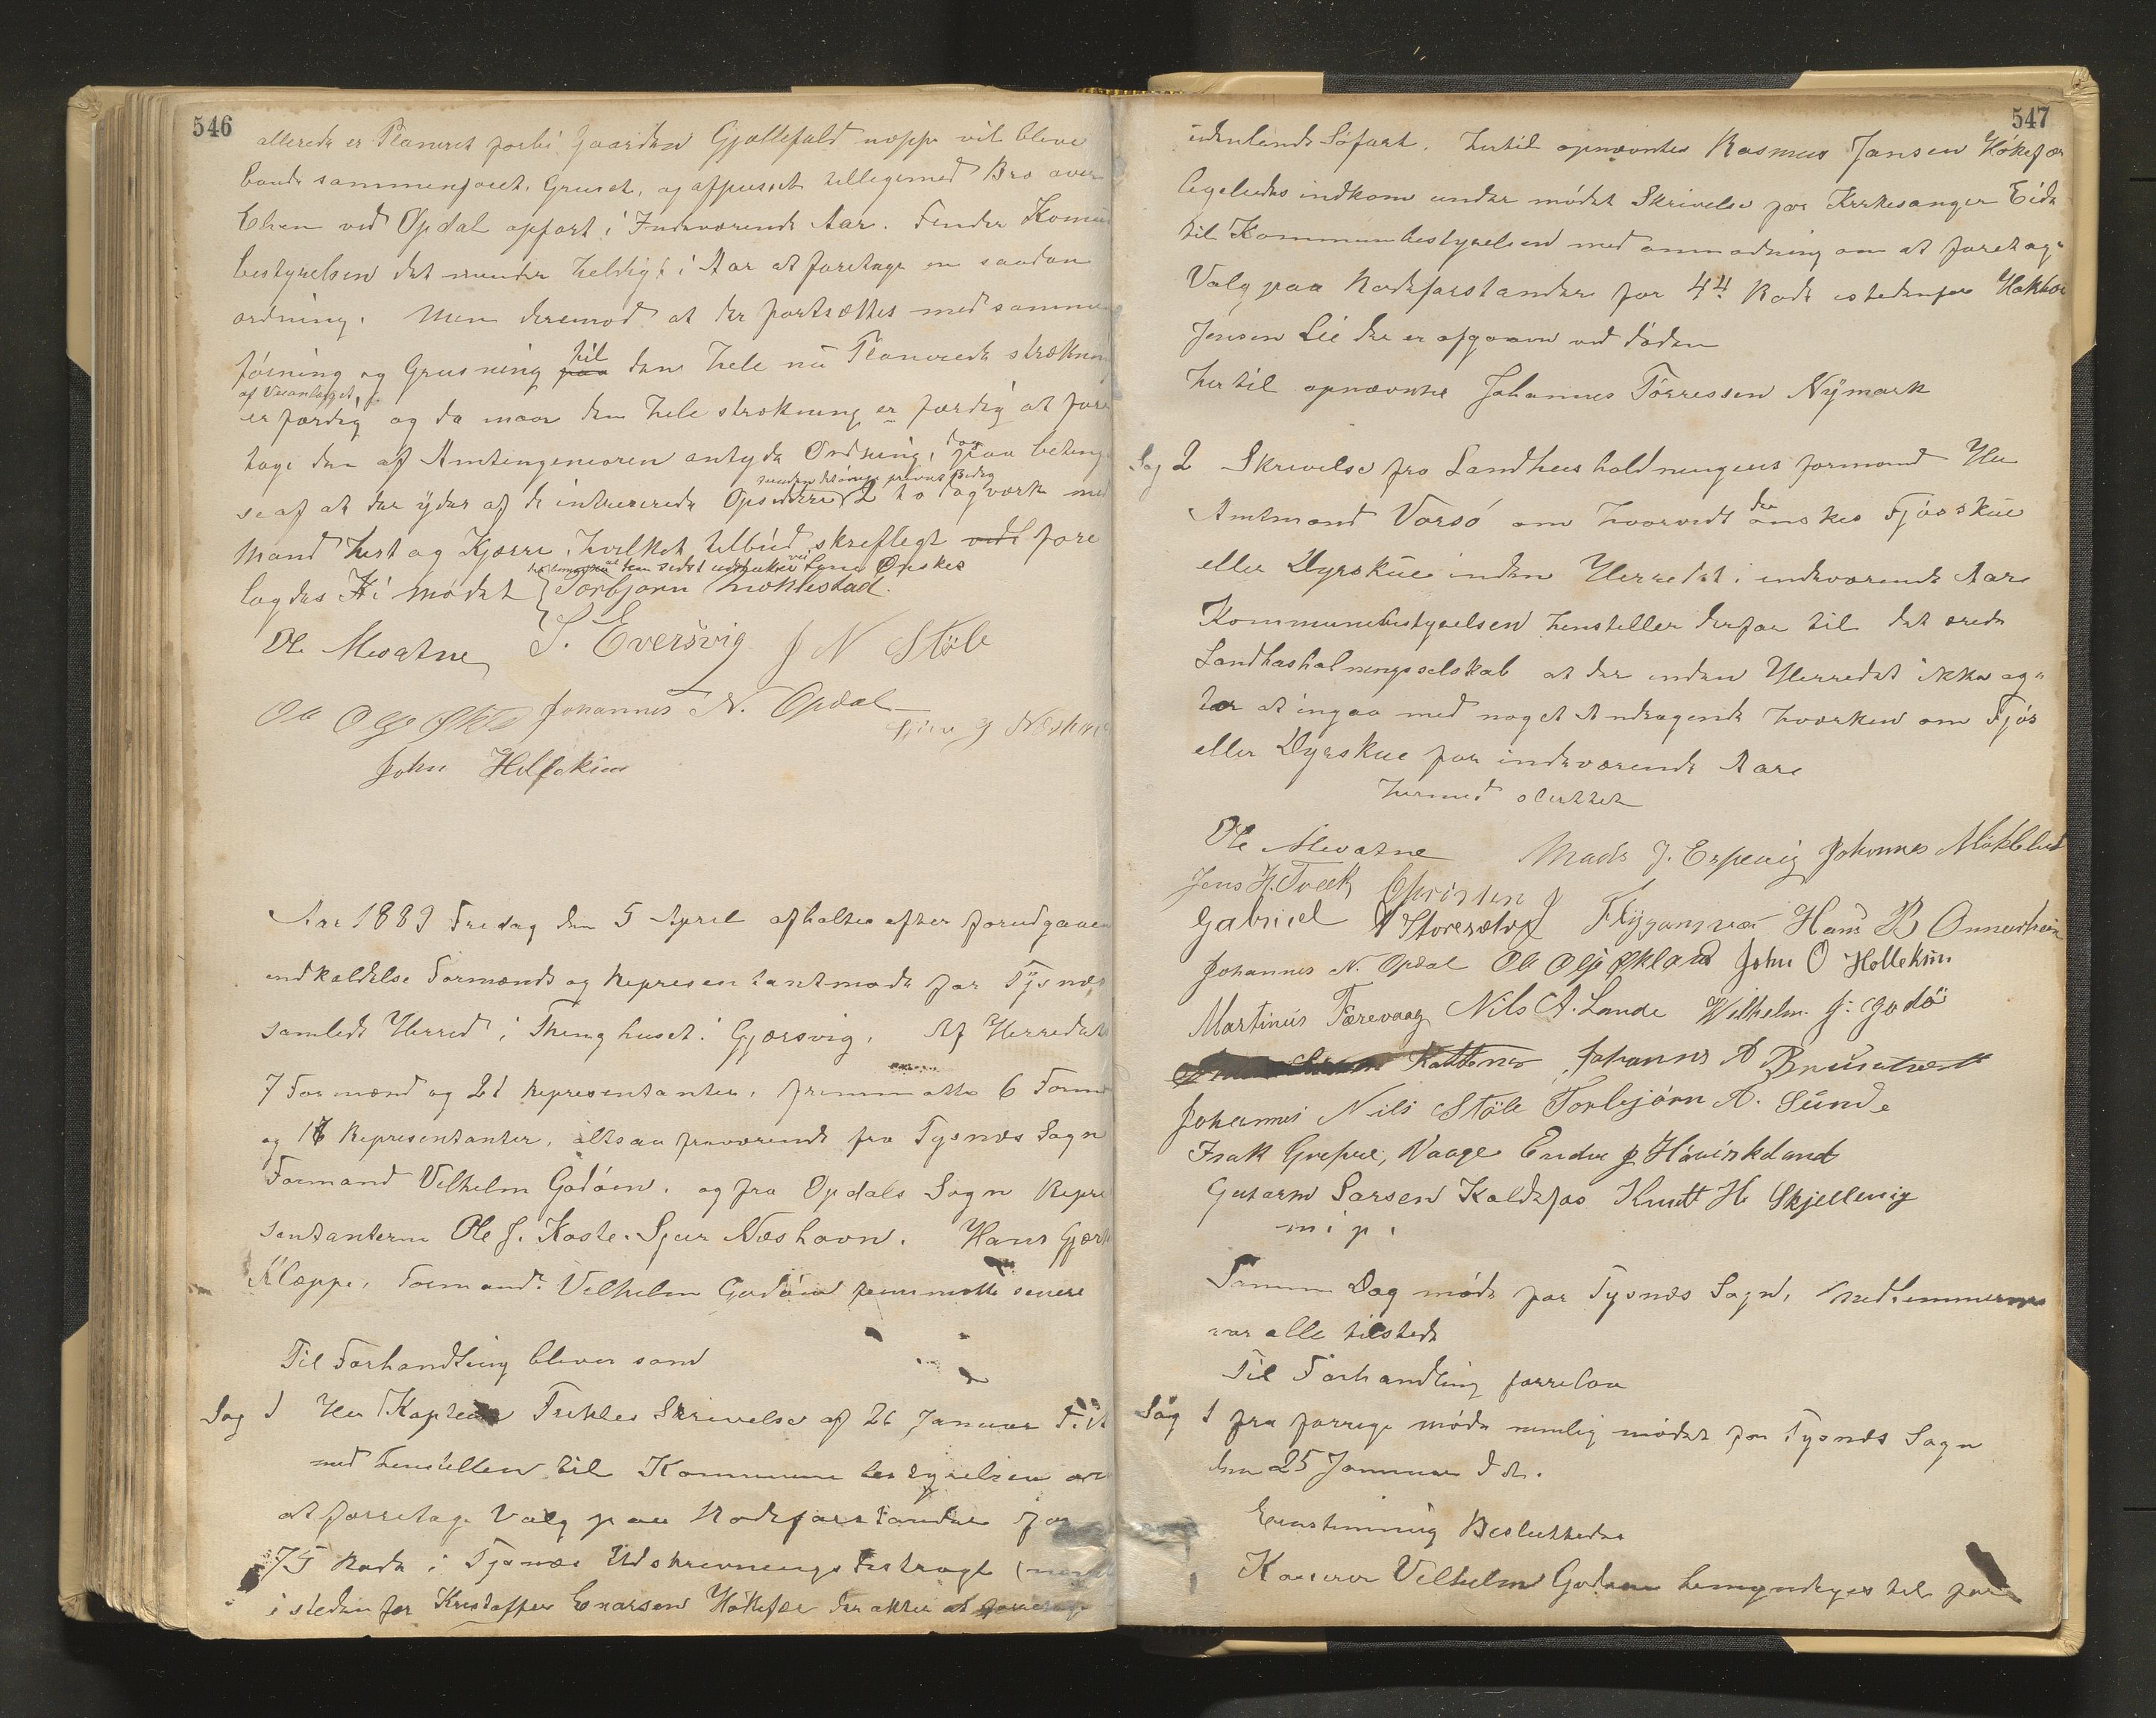 546
allerede er Planeret forbi Gaarden Gjøllefald neppe vil blive
baade sammenføiet, Gruset, og afpusset tilligemed Bro over
Elven ved Opdal opført i Indeværende Aar. Finder Komun
bestyrelsen det mindre heldigt i Aar at foretage en saadan
ordning. Men derimod at der fortsættes med sammen
føining og Grusning til den hele nu Planerede strækning
af Veianlægget,
er færdig og da naar den hele strækning er færdig at fore
tage den af Amtingeniøren antyde Ordning, dog paa beting
else af at der ydes af de intresserede Opsiddere 2 to dagværk med
Mand hest og Kjærre, hvilket tilbud skriftlegt fore
lagdes i mødet Torbjørn Møklestad
Ole Mevatne S. Eversvig J N Støle
Ole Olss Økl Johannes N. Opdal
John Hellekim
Aar 1889 Fredag den 5 April afholtes efter forudgaaen
indkaldelse Formænds og Representantmøde for Tysnæs
samlede Herred i Thinghuset i Gjærsvig. Af Herredets
7 Formænd og 21 Representanter, fremmøtte 6 Form
og 18 Representanter, altsaa fraværende fra Tysnæs Sogn
Formand Vilhelm Godøen, og fra Opdals Sogn Repre
sentanterne Ole J. Koste. Sjur Næshavn. Hans Gjert
Kleppe, Formand Vilhelm Godøen fremmøtte senere
Til Forhandling blever som
Sag 1 Her Kaptein Frekles Skrivelse af 26 Januar
med henstillen til Kommune bestyrelsen om
at foretage Valg paa Rodeforstander for
75 Rode i Tysnæs Udskrevnings distragt
i steden for Kristoffer Enarsen Høkefær der akter at
547
udenlands Søfart. hertil opnævntes Rasmus Jansen Høkefær
legeledes indkom under mødet Skrivelse for Kirkesanger Eide
til Kommunebestyrelsen med anmodning om at foretage
Valg paa Rodeforstander for 44 Rode istedenfor Haktor
Jensen Lie der er afgaaen ved døden
hertil opnævntes Johannes Tørressen Nymark
Sag 2 Skrivelse fra Landhusholdningens formand Her
Amtmand Vorsø om hvorvidt der ønskes Fjøsskue
eller Dyrskue inden Herredet i indeværende Aar
Kommunebestyrelsen henstiller derfor til det ærede
Landhusholningsselskab at der inden Herredet ikke ag-
ter at ingaa med noget Andragende hverken om Fjøs
eller Dyrskue for indeværende Aar
hermed sluttet
Ole Mevatne Mads J. Espevig Johannes Møklebust
Jens H. Tveit Christen J
Gabriel A Storesætre Flygansvær Hans B Onnarheim
Johannes N. Opdal Ole Olss Økland John O Hellekim
Martinus Færevaag Nils A. Lande Vilhelm J. Godø
Kattenes Johannes A Bruntveit
Johannes Nils Støle Torbjørn A. Sunde
Isak Grefsve, Vaage Endre J Høviskeland
Gutorm Larsen Kaldefos Knutt H. Skjellevig
m. p.
Samme Dag møde for Tysnæs Sogn, Medlemmerne
var alle tilstede
Til Forhandling forrelaa
Sag 1 fra forrige møde nemlig mødet for Tysnæs Sogn
den 25 Januar d A.
Eenstemmig Besluttedes
Kasserer Vilhelm Godøen bemyndiges til for